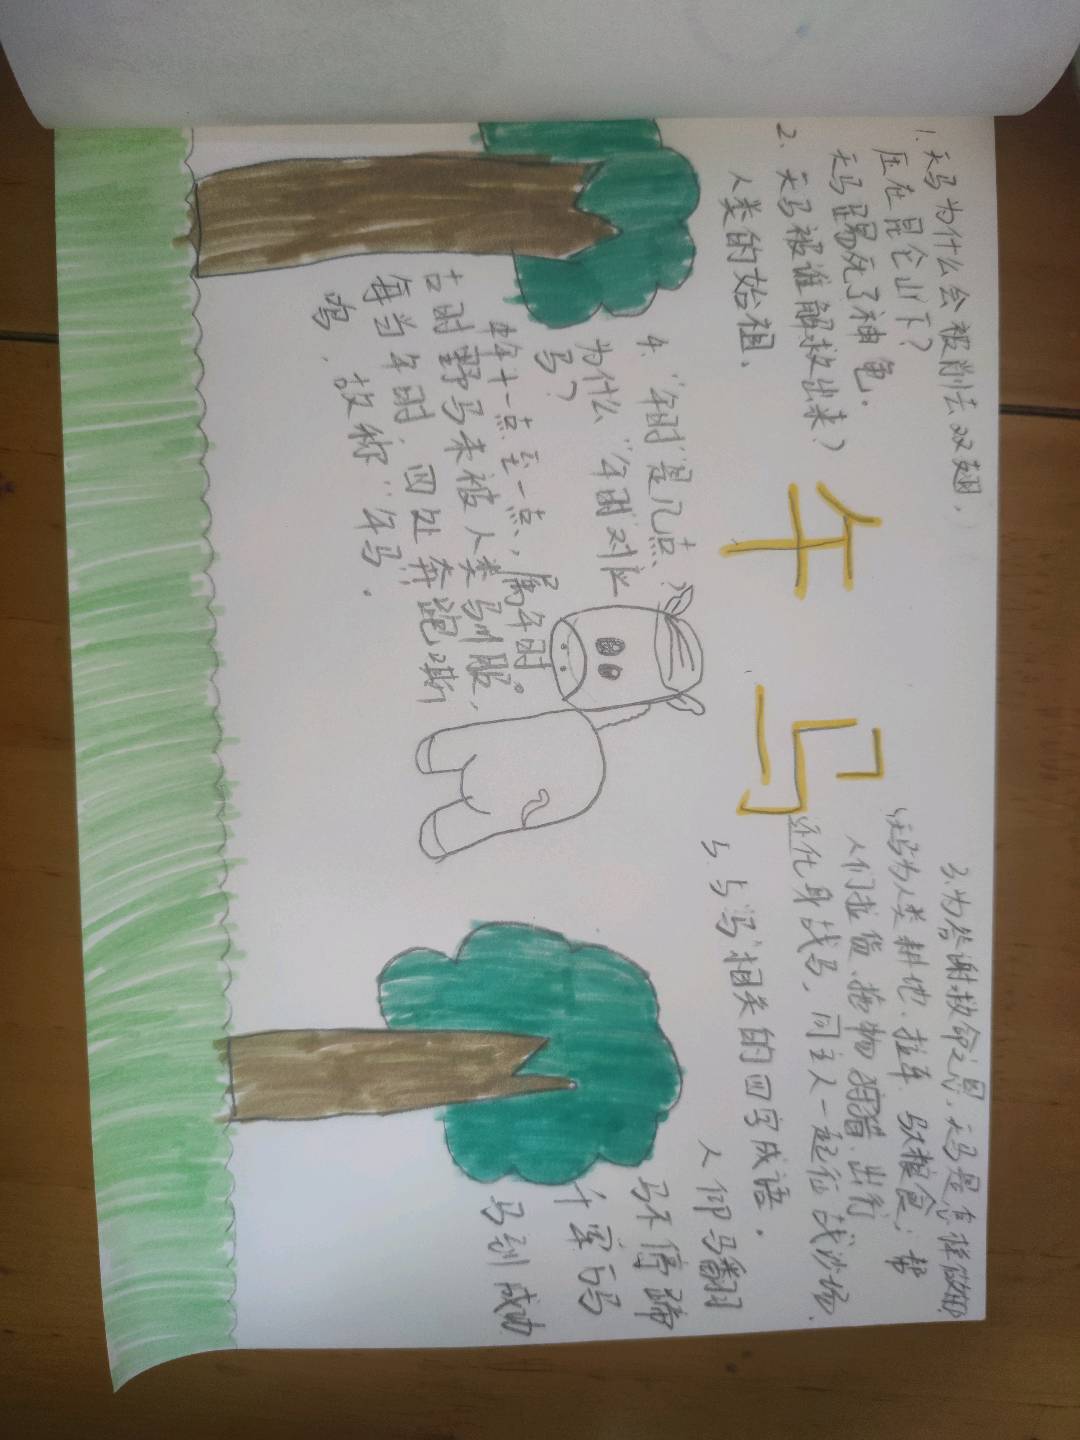 午马
1.天马为什么会被削去双翅,
压在昆仑山下?
天马踢死了神龟。
2、天马被谁解救出来?
人类的始祖、
3、为答谢救命之恩,天马是怎样做的
天马为人类耕地、拉车 驮粮食,帮
人们拉货、拖物 狩猎、出行
还化身战马,同主人一起征战沙场.
4."午时"是几点?
为什么"午时"对应
马?
中午十一点至一点,属午时。
古时野马未被人类驯服,
每当午时,四处奔跑嘶
鸣,故称"午马.
5.与"马"相关的四字成语.
人仰马翻
马不停蹄
千军万马
马到成功